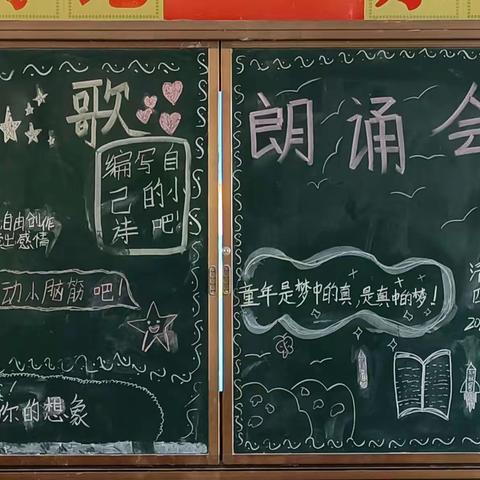 歌
编写自
己的小
诗吧!
自由创作
上感情
动小脑筋吧!
你的想象
朗诵会
童年是梦中的真,是真中的梦!
四
20